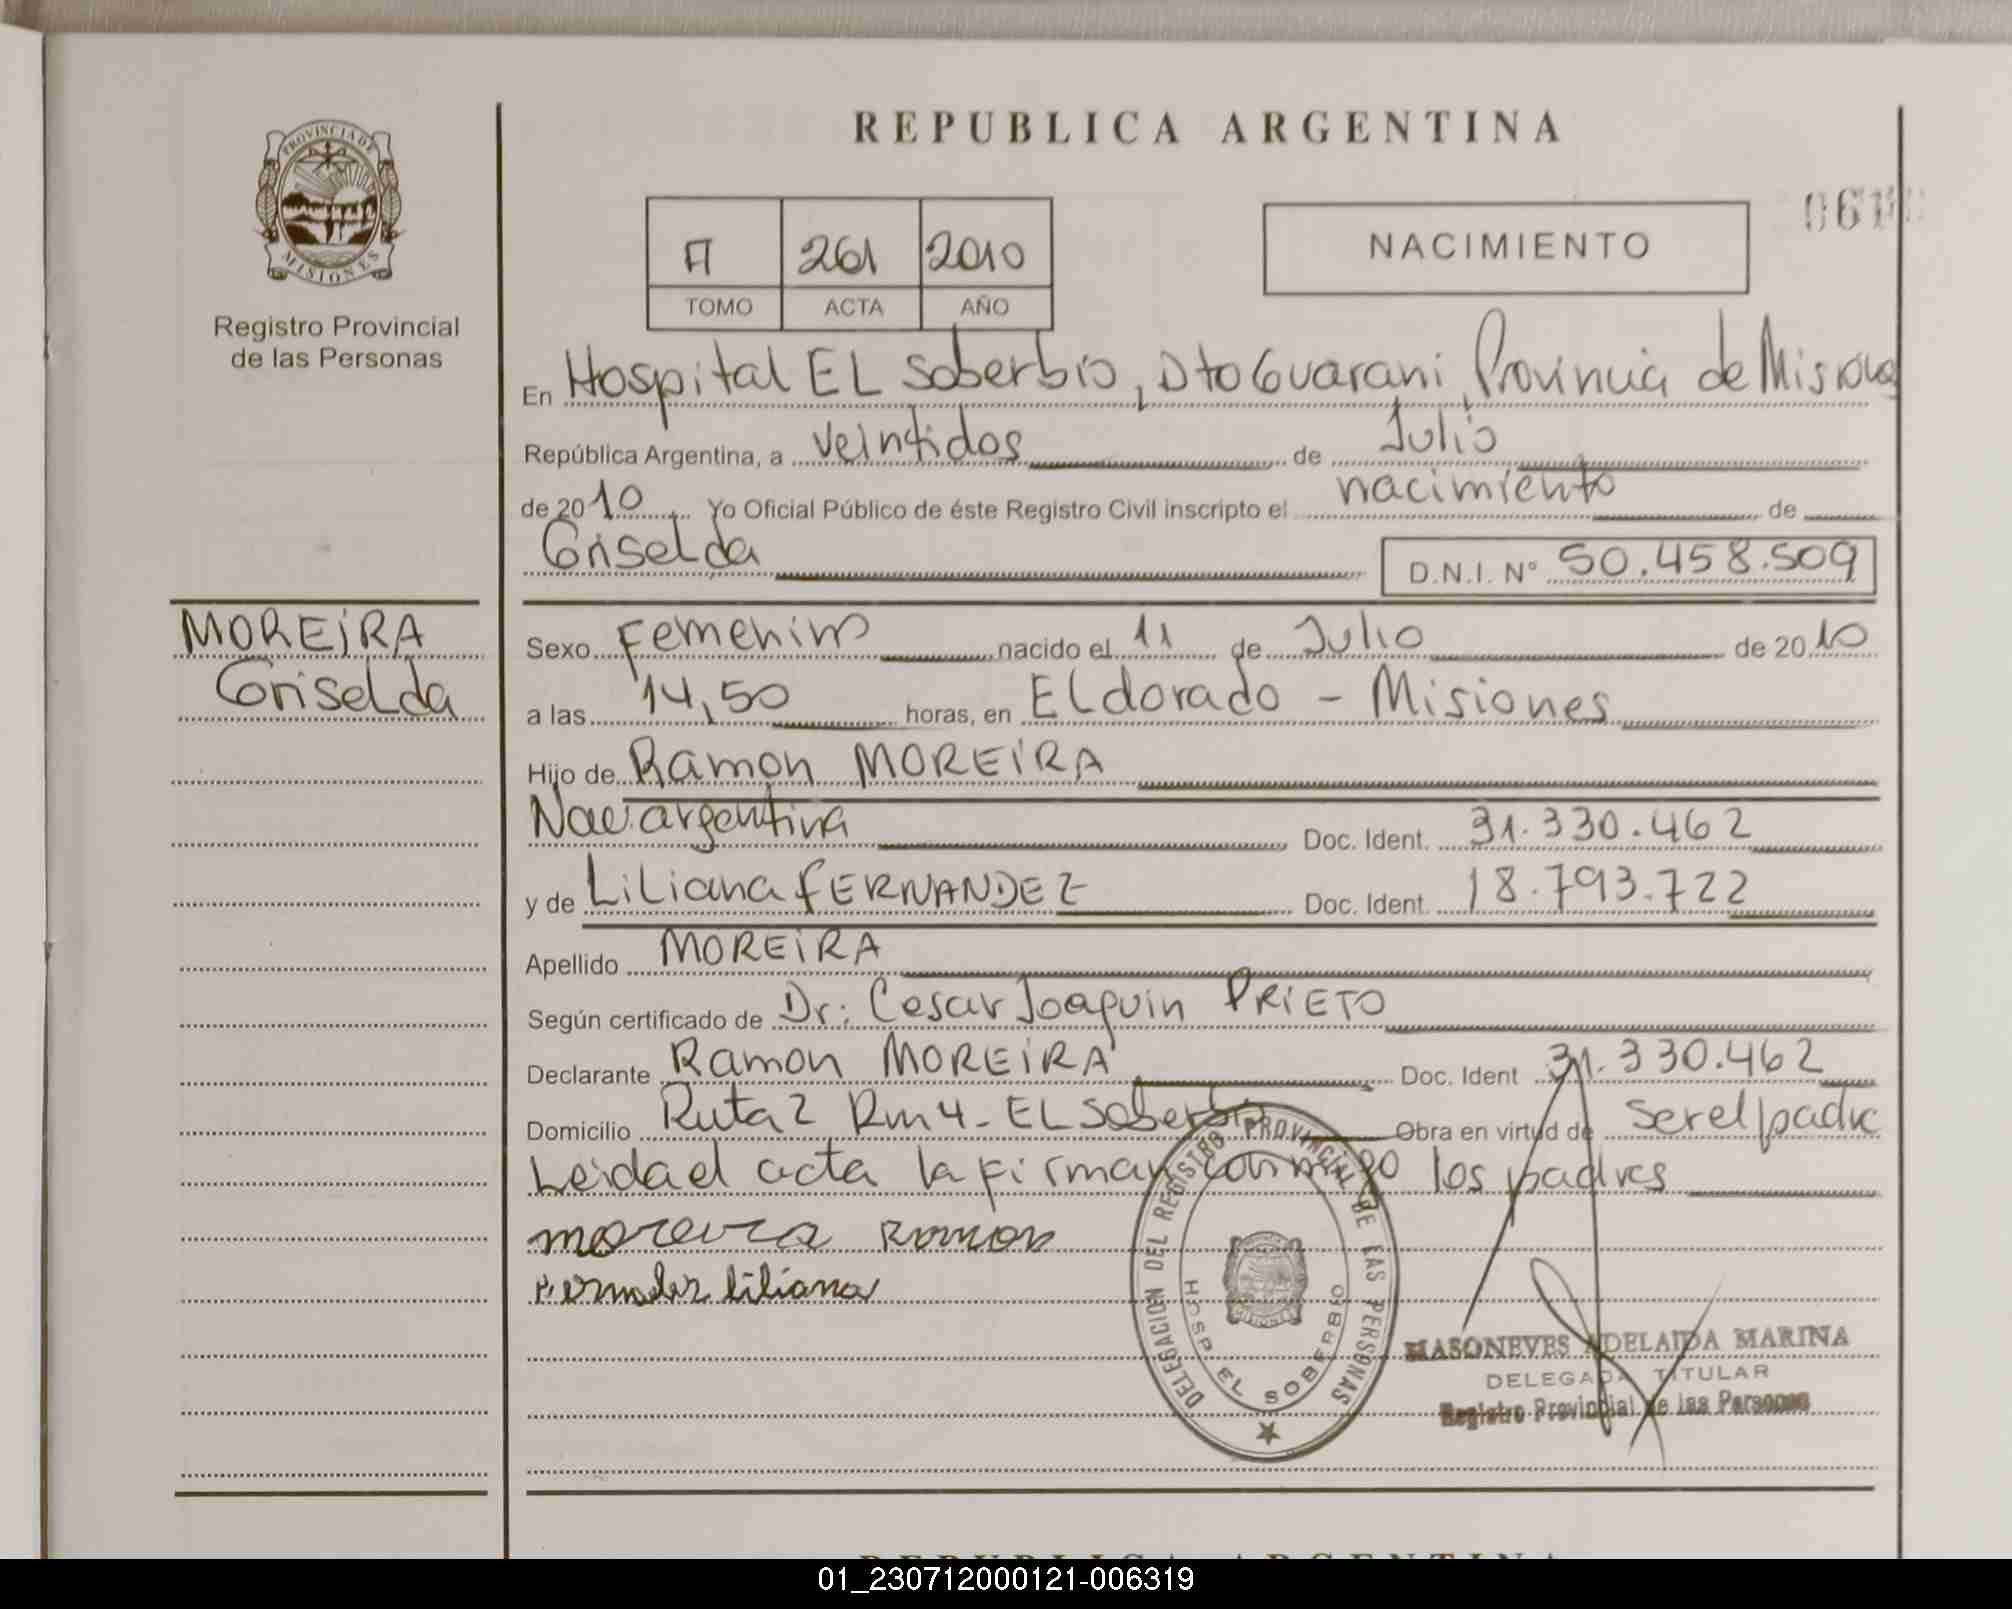 REPUBLICA ARGENTINA
PROVINCIA DE MISIONES
Registro Provincial
de las Personas
A 261 2010
TOMO ACTA AÑO
NACIMIENTO
En Hospital EL Soberbio, Dto Guarani, Provincia de Misiones
República Argentina, a veintidos de Julio
de 2010 Yo Oficial Público de éste Registro Civil inscripto el nacimiento de
Griselda D.N.I. Nº 50.458.509
MOREiRA
Griselda
Sexo Femenino nacido el 11 de Julio de 2010
a las 14,50 horas, en ELdorado - Misiones
Hijo de Ramon MOREiRA
Nac. argentina Doc. Ident. 31.330.462
y de LiLiana FERNANDEZ Doc. Ident. 18.793.722
Apellido MOREiRA
Según certificado de Dr: Cesar Joaquin PRiETO
Declarante Ramon MOREiRA Doc. Ident 31.330.462
Domicilio Ruta 2 Km 4 - EL Soberbio Obra en virtud de ser el padre
Leida el acta la firman conmigo los padres
moreira Ramon
Fernadez liliana
DELEGACION DEL REGISTRO PROVINCIAL DE LAS PERSONAS
HOSP EL SOBERBIO
MASONEVES ADELAIDA MARINA
DELEGADA TITULAR
Registro Provincial de las Personas
REPUBLICA ARGENTINA
01_230712000121-006319